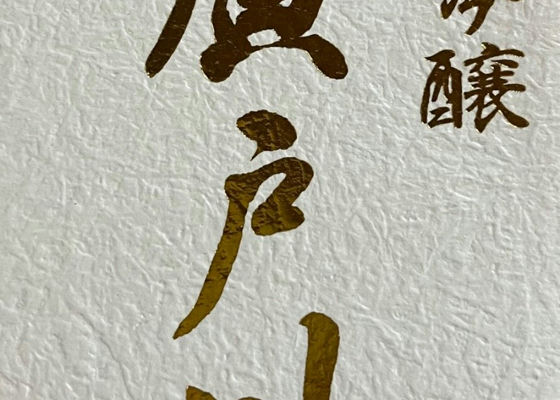 吟醸
廣戸川